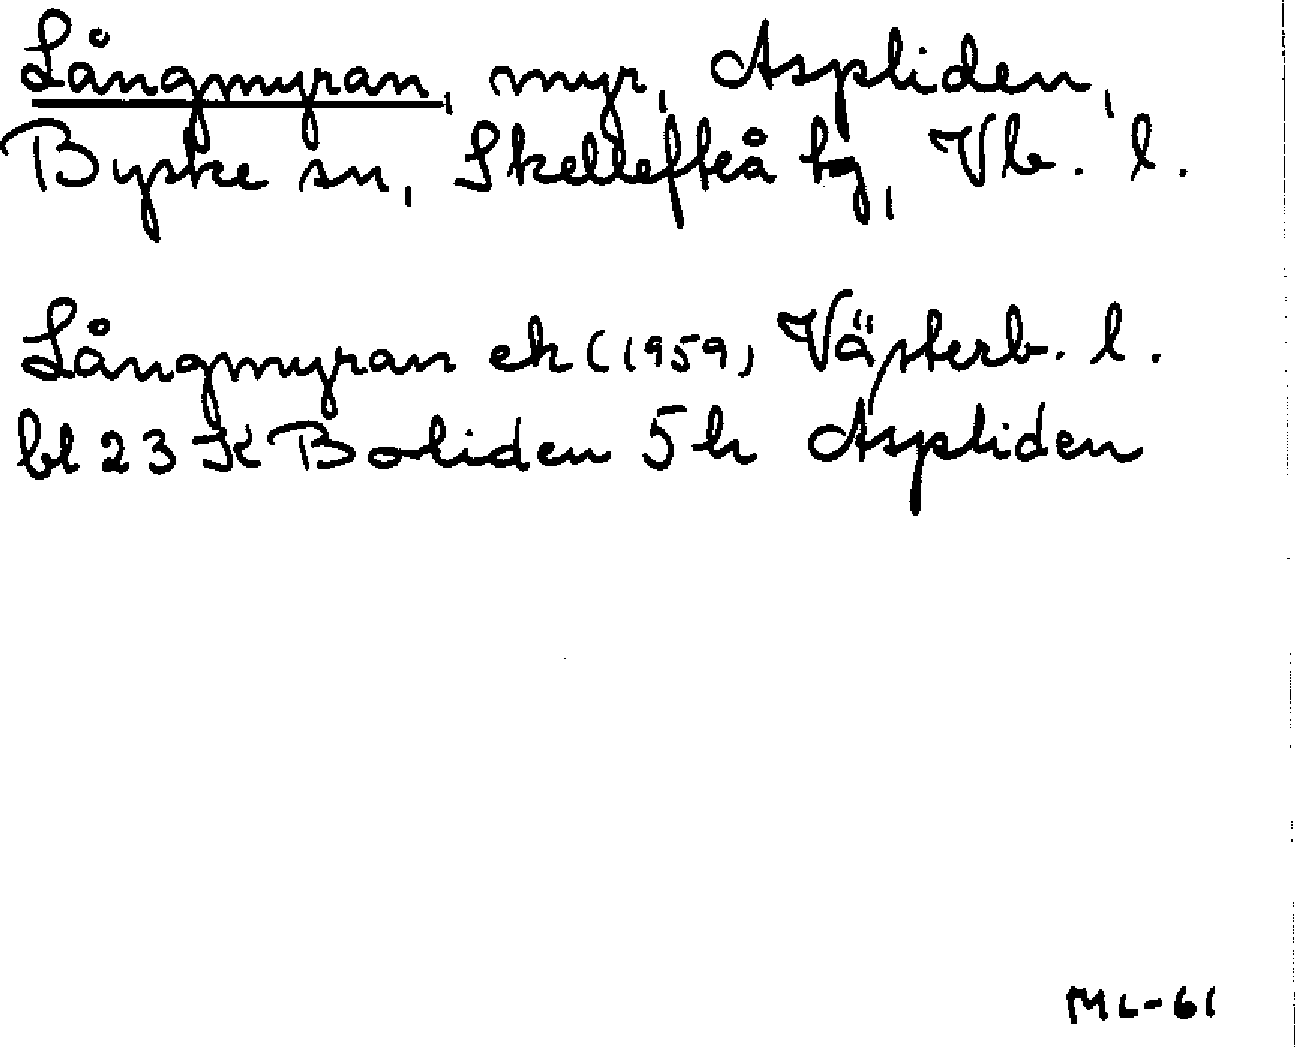 Långmyran, myr, Aspliden,
Byske sn, Skellefteå tg, Vb. l.
Långmyran ek (1959) Västerb. l.
bl 23 K Boliden 5 h Aspliden
ML-61